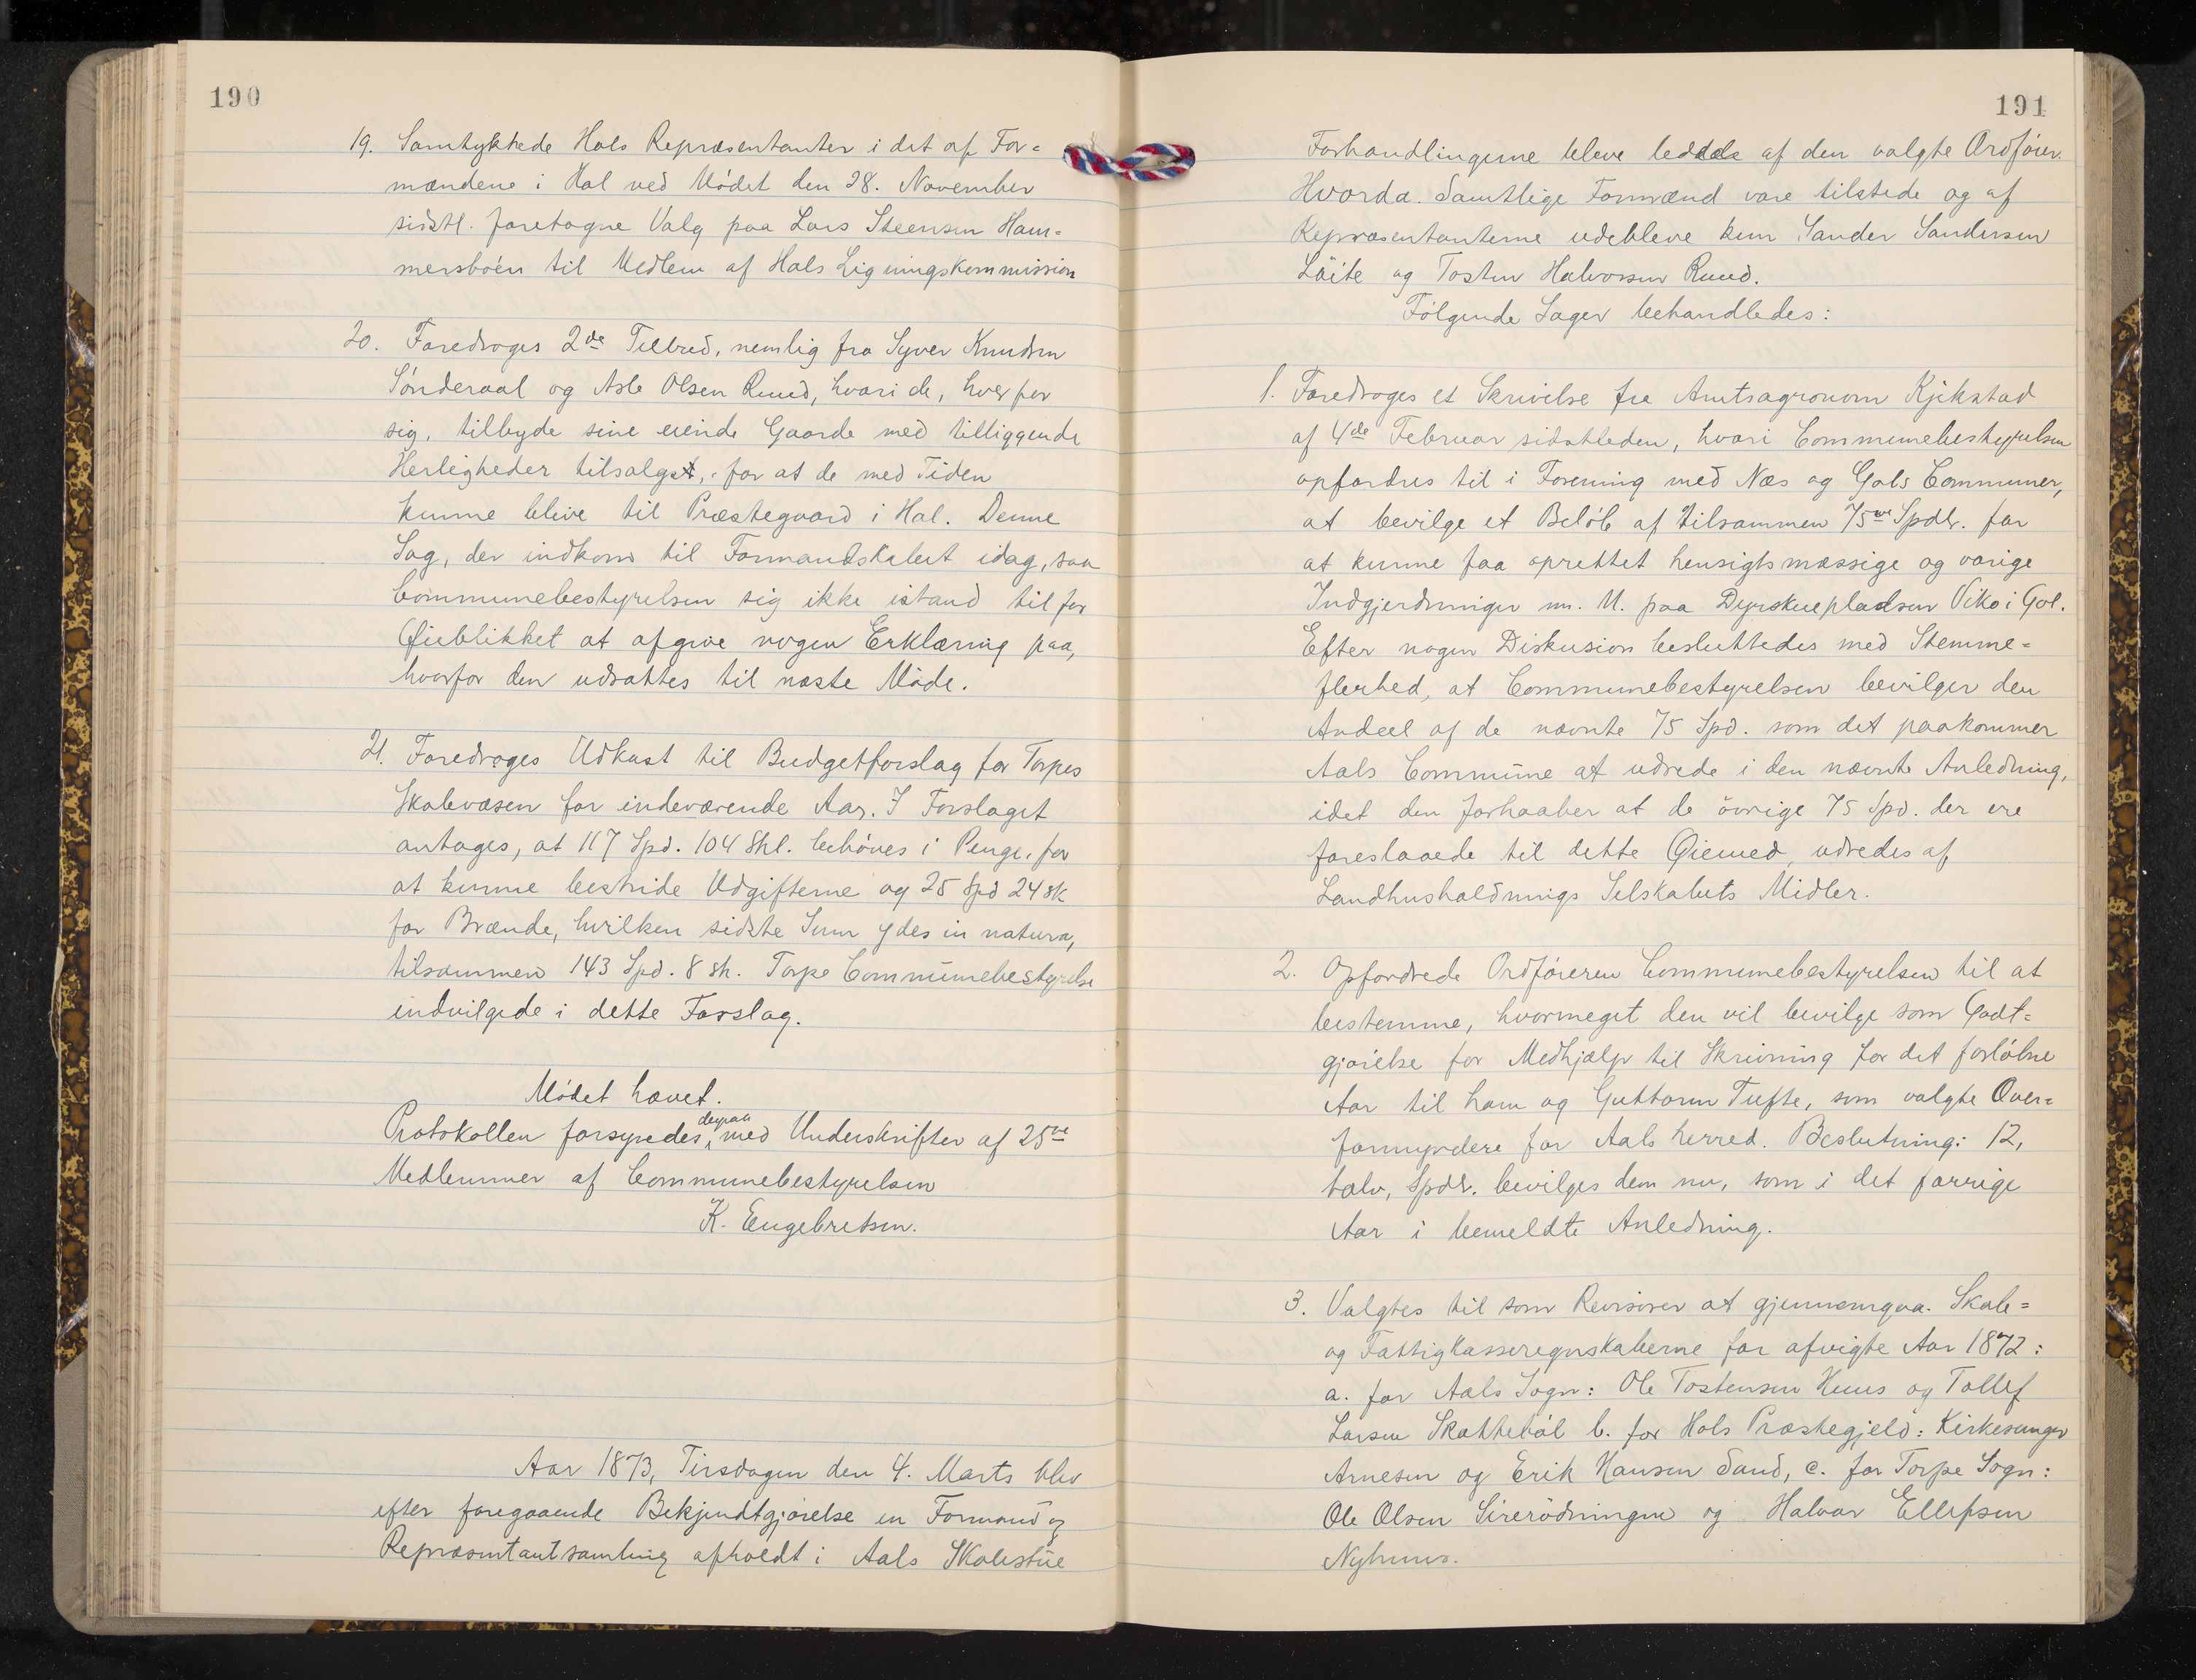 190
19. Samtykkede Hols Repræsentanter i det af For=
mændene i Hol ved Mödet den 28. November
sidstl. foretagne Valg paa Lars Steensen Ham=
mersböen til Medlem af Hols Ligningskommission
20. Foredroges 2de Tilbud, nemlig fra Syver Knudsen
Sönderaal og Asle Olsen Ruud, hvori de, hver for
sig, tilbyde sine eiende Gaarde med tilliggende
Herligheder tilsalgs, for at de med Tiden
kunne blive til Præstegaard i Hol. Denne
Sag, der indkom til Formandskabet idag, saa
Communebestyrelsen sig ikke istand til for
Øieblikket at afgive nogen Erklæring paa,
hvorfor den udsattes til næste Möde.
21. Foredroges Udkast til Budgetforslag for Torpes
Skolevæsen for indeværende Aar. I Forslaget
antages, at 117 Spd. 104 Skl. behöves i Penge, for
at kunne bestride Udgifterne og 25 Spd 24 sk
for Brænde, hvilken sidste Sum ydes in natura,
tilsammen 143 Spd. 8 sk. Torpe Communebestyrelse
indvilgede i dette Forslag.
Mödet hævet.
Protokollen forsynedes derpaa med Underskrifter af 25ve
Medlemmer af Communebestyrelsen
K. Engebretsen.
Aar 1873, Tirsdagen den 4. Marts blev
efter foregaaende Bekjendtgjörelse en Formand og
Repræsentantsamling afholdt i Aals Skolestue
191
Forhandlingerne bleve ledede af den valgte Ordförer
Hvorda. Samtlige Formænd vare tilstede og af
Repræsentanterne udebleve kun Sander Sandersen
Löite og Tosten Halvorsen Ruud.
Fölgende Sager behandledes:
1. Foredroges et Skrivelse fra Amtsagronom Kjikstad
af 4de Februar sidstleden, hvori Communebestyrelsen
opfordres til i Forening med Næs og Gols Communer,
at bevilge et Belöb af tilsammen 75ve Spdlr. for
at kunne faa oprettet hensigtsmæssige og varige
Indgjerdninger m. M. paa Dyrskuepladsen Viko i Gol.
Efter nogen Diskusion besluttedes med Stemme=
flerhed, at Communebestyrelsen bevilger den
Andeel af de nævnte 75 Spd. som det paakommer
Aals Commune at udrede i den nævnte Anledning,
idet den forhaaber at de övrige 75 Spd. der ere
foreslaaede til dette Øiemed, udredes af
Landhusholdnings Selskabets Midler.
2. Opfordrede Ordföreren Communebestyrelsen til at
bestemme, hvormeget den vil bevilge som Godt=
gjörelse for Medhjælp til Skrivning for det forlöbne
Aar til ham og Guttorm Tufte, som valgte Over=
formyndere for Aals herred. Beslutning: 12,
tolv, Spdlr. bevilges dem nu, som i det forrige
Aar i bemeldte Anledning.
3. Valgtes til som Revisorer at gjennemgaa Skole=
og Fattigkasseregnskaberne for afvigte Aar 1872:
a. for Aals Sogn: Ole Tostensen Huus og Tollef
Larsen Skatteböl b. for Hols Præstegjeld: Kirkesanger
Arnesen og Erik Hansen Sand, c. for Torpe Sogn:
Ole Olsen Sirerödningen og Halvor Ellefsen
Nyhuus.